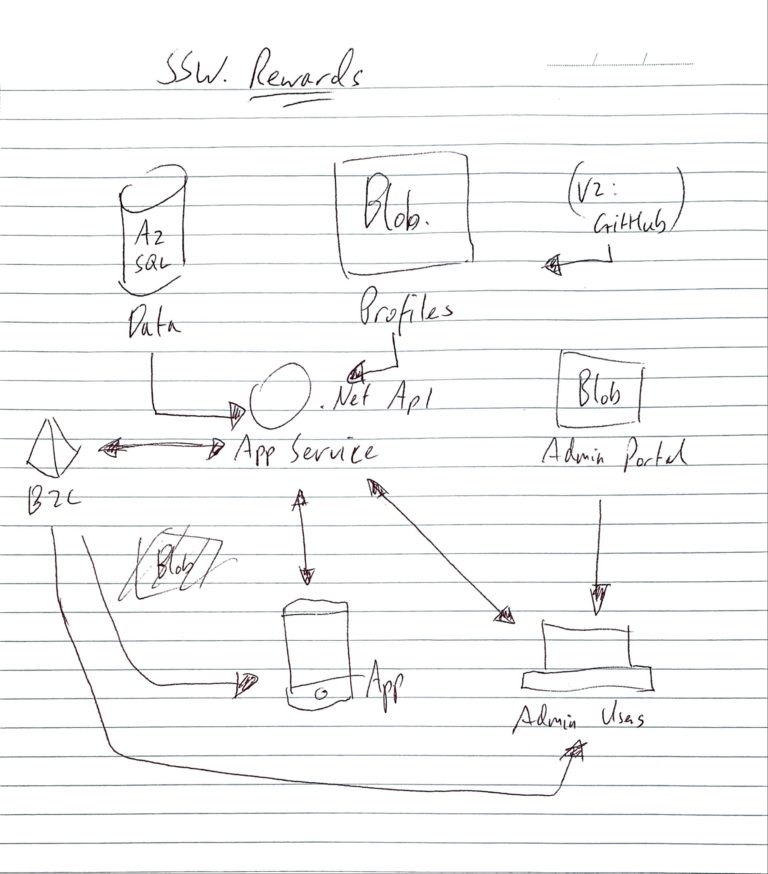 SSW. Rewards
Az
SQL
Data
Blob.
Profiles
(V2:
GitHub)
.Net API
App Service
Blob
Admin Portal
B2C
Blob
App
Admin Users